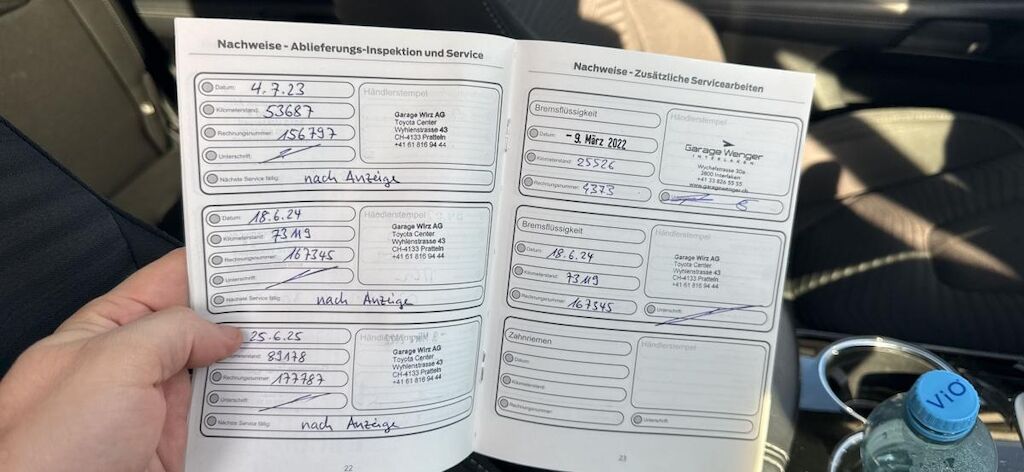 Nachweise - Ablieferungs-Inspektion und Service
Datum: 4.7.23
Kilometerstand: 53687
Rechnungsnummer: 156797
Unterschrift:
Nächste Service fällig: nach Anzeige
Händlerstempel
Garage Wirz AG
Toyota Center
Wyhlenstrasse 43
CH-4133 Pratteln
+41 61 816 94 44
Datum: 18.6.24
Kilometerstand: 73119
Rechnungsnummer: 167345
Unterschrift:
Nächste Service fällig: nach Anzeige
Händlerstempel
Garage Wirz AG
Toyota Center
Wyhlenstrasse 43
CH-4133 Pratteln
+41 61 816 94 44
25.6.25
Kilometerstand: 89178
Rechnungsnummer: 177787
Unterschrift:
Nächste Service fällig: nach Anzeige
Händlerstempel
Garage Wirz AG
Toyota Center
Wyhlenstrasse 43
CH-4133 Pratteln
+41 61 816 94 44
22
Nachweise - Zusätzliche Servicearbeiten
Bremsflüssigkeit
Datum: - 9. März 2022
Kilometerstand: 25526
Rechnungsnummer: 4373
Händlerstempel
Garage Wenger
INTERLAKEN
Wychelstrasse 30a
3800 Interlaken
+41 33 826 55 55
www.garagewenger.ch
Bremsflüssigkeit
Datum: 18.6.24
Kilometerstand: 73119
Rechnungsnummer: 167345
Händlerstempel
Garage Wirz AG
Toyota Center
Wyhlenstrasse 43
CH-4133 Pratteln
+41 61 816 94 44
Unterschrift:
Zahnriemen
Datum:
Kilometerstand:
Rechnungsnummer:
Händlerstempel
Unterschrift:
23
ViO